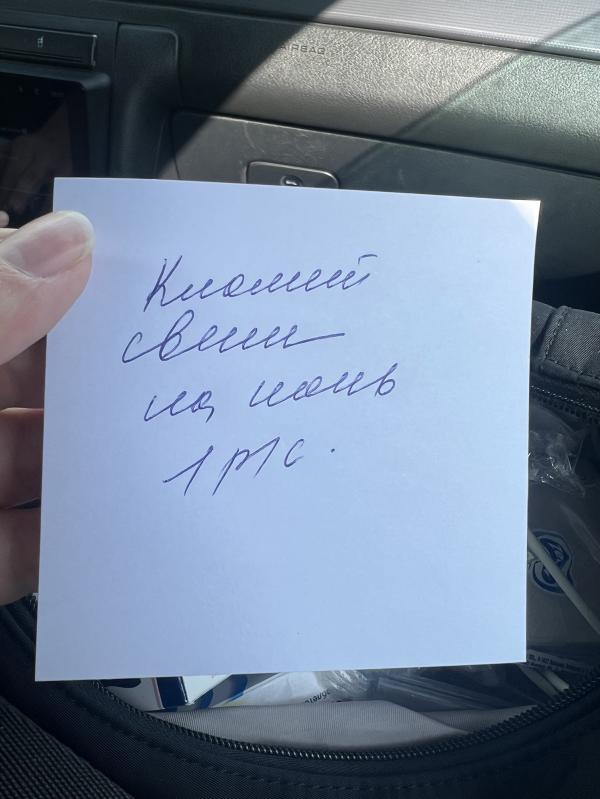 AIRBAG
свечи
на ночь
1 р/с.